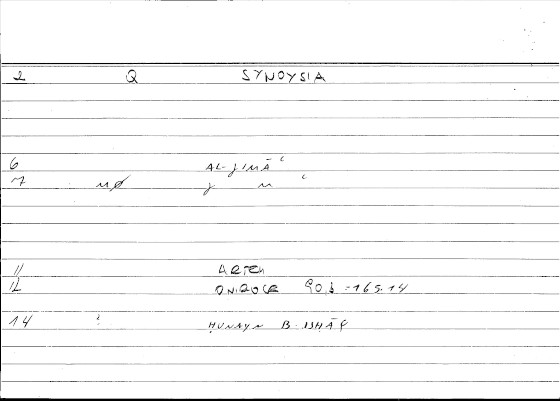 2 Q SYNOYSIA
6 AL-JIMĀʿ
7 MØ J M ʿ
11 ARTEM
12 ONIROCR 90.6 = 165.14
14 : ḤUNAYN B. ISḤĀQ